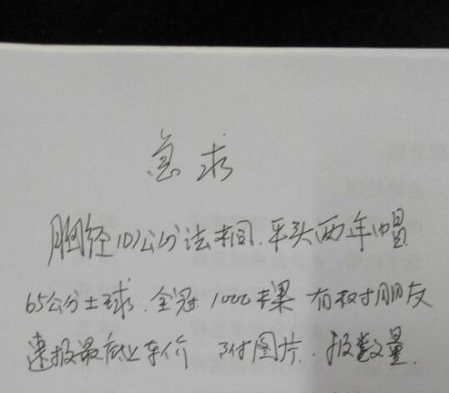 急求
胸经10公分法桐.平头两年帽
65公分土球.全冠1000棵 有树朋友
速报最底上车价 附图片.报数量.